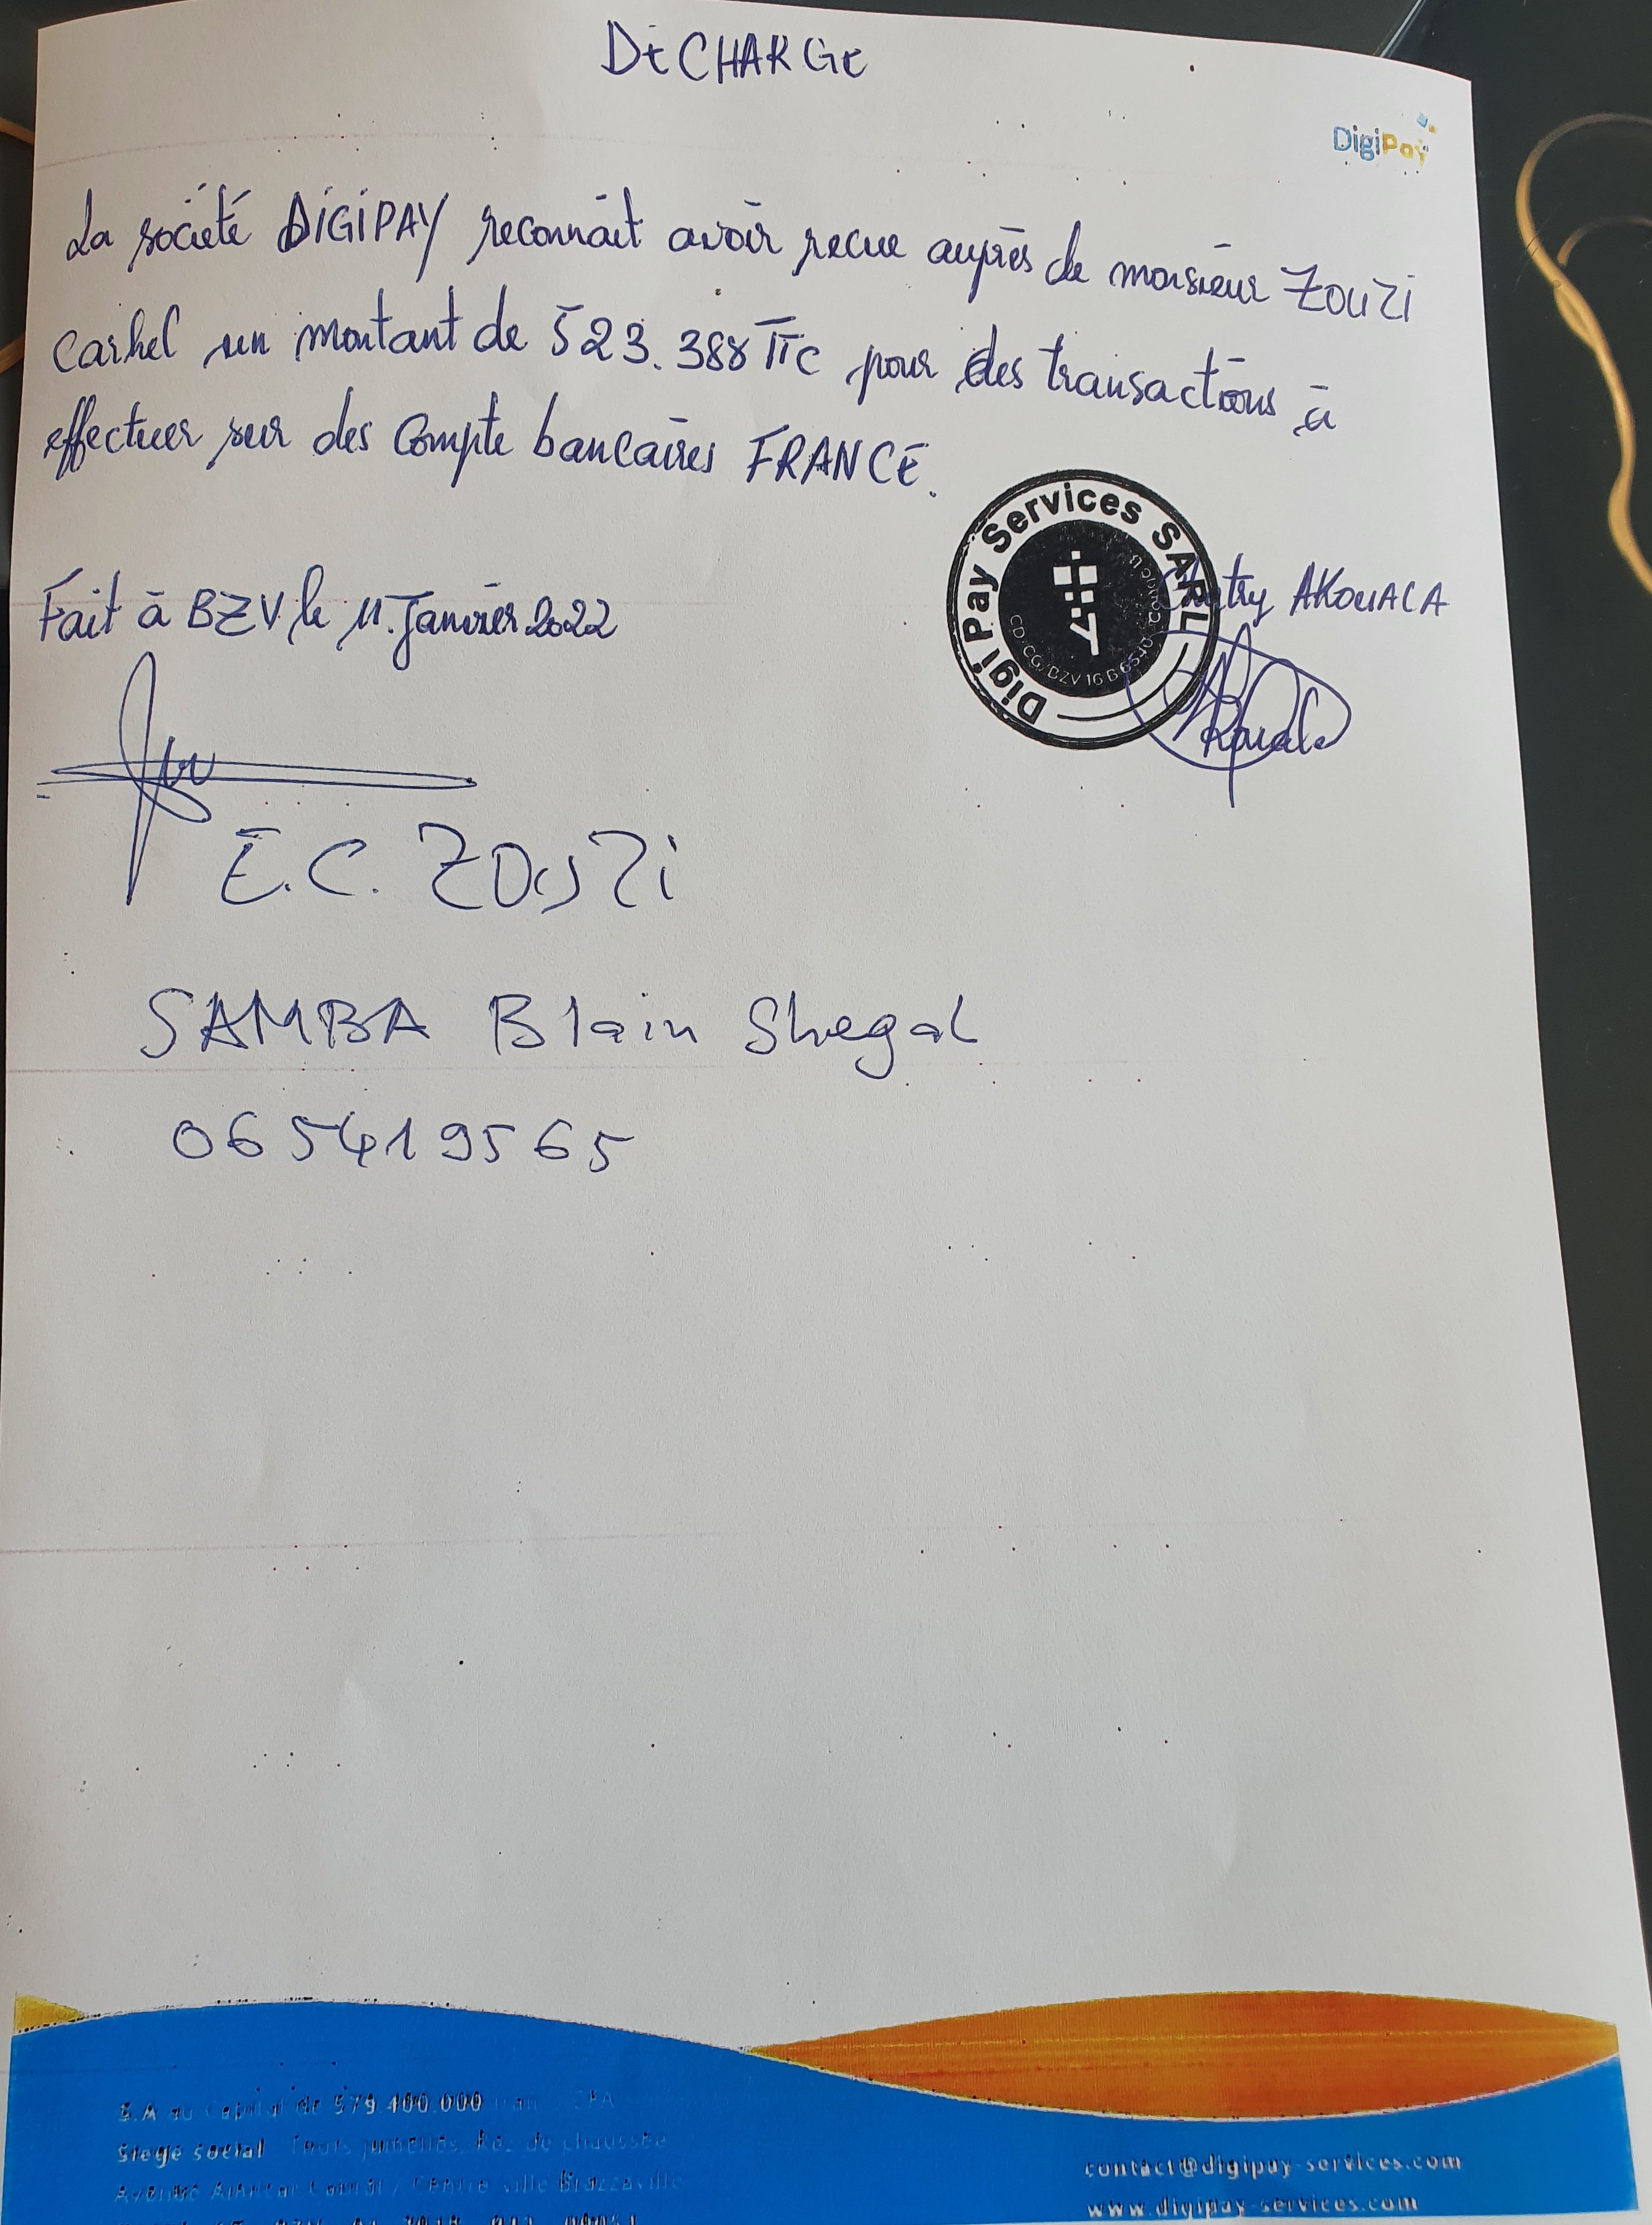 DÉCHARGE
DigiPay
La société DIGIPAY reconnait avoir recue auprès de monsieur ZOUZI
Carhel un montant de 523.388 TTC pour des transactions à
effectuer sur des Compte bancaires FRANCE.
Digi Pay Services SARL
CD/CG/BZV 16 B 6540
AKOUALA
Fait à BZV le 11. Janvier 2022
E.C. ZOUZI
SAMBA Blain Shegal
065419565
S.A au Capital de 579.400.000
Siege social
Centre ville Brazzaville
contact@digipay-services.com
www.digipay-services.com